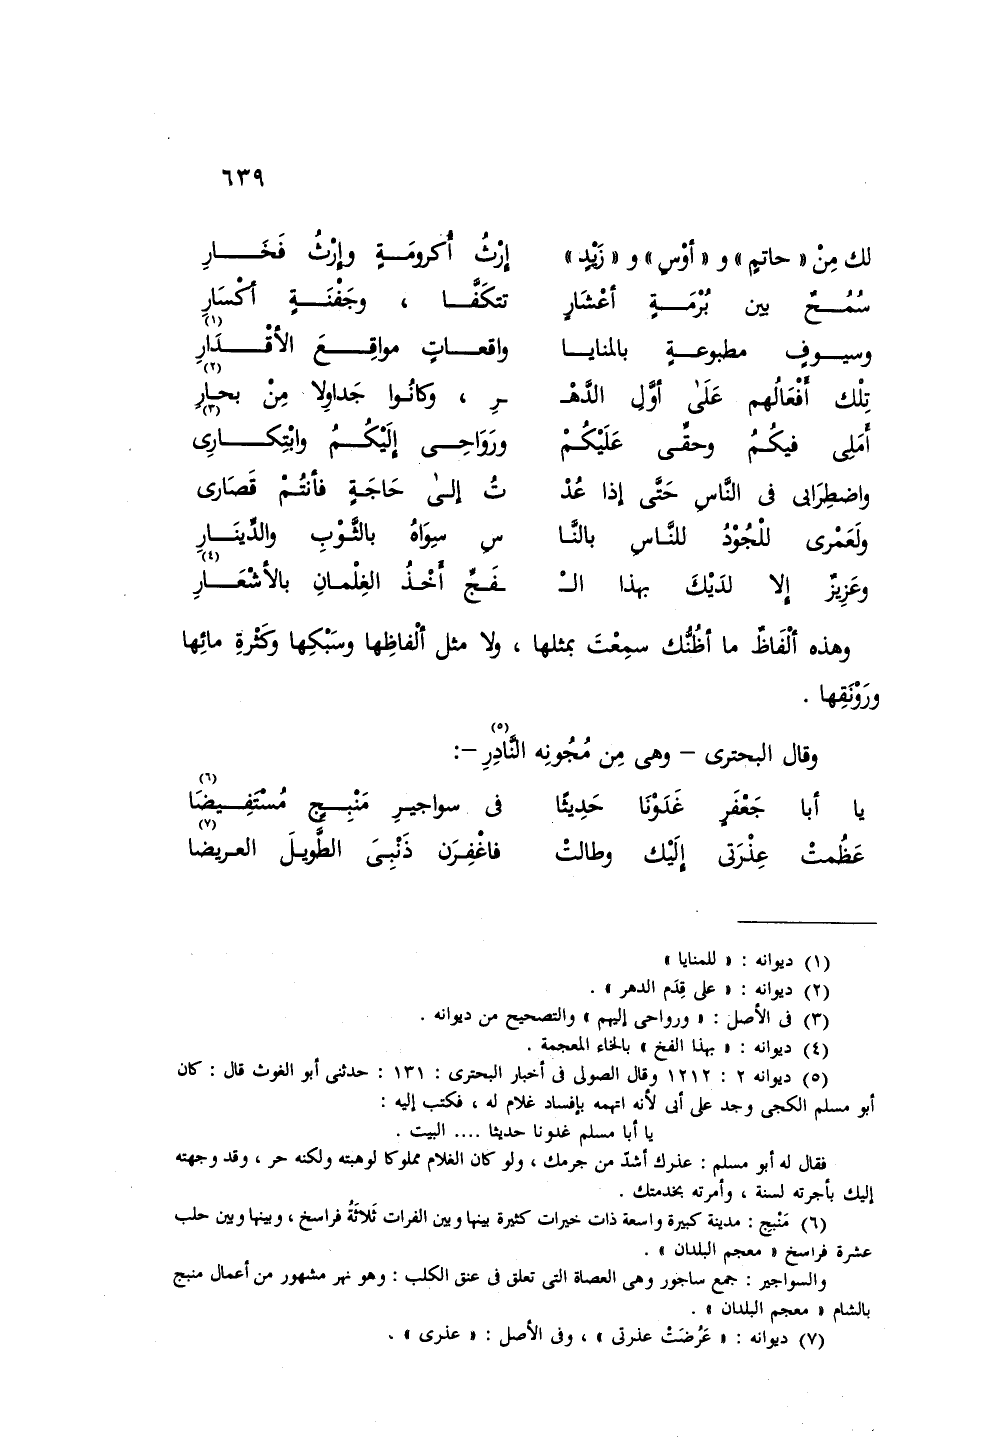 ٦٣٩
لك مِنْ « حاتمٍ » و « أوْسٍ » و « زَيْدٍ » إرْثُ أُكرومَـــةٍ وإرْثُ فَخَـــــارِ
سُمُـــحٌ بين بُرْمَـــةٍ أعْشَارٍ تتكَفَّـــا ، وجَفْنَـــةٍ أكْسَارِ
وسيـــوفٍ مطبوعـــةٍ بالمنايـــا واقعـــاتٍ مواقِـــعَ الأقْـــدَارِ (١)
تِلْك أَفْعَالُهم عَلَىٰ أوَّلِ الدَّهْـ ـرِ ، وكَانُوا جَداولا مِنْ بحارِ (٢)
أَمَلِى فيكُمُ وحقِّى عَلَيْكُمْ ورَوَاحِـــى إلَيْكُـــمُ وابْتِكـــارِى (٣)
واضطِرَابى فى النَّاسِ حَتَّى إذا عُدْ تُ إلىٰ حَاجَةٍ فأنتُمْ قَصَارى
ولَعَمْرى لَلْجُوْدُ للنَّاسِ بالنَّا سِ سِوَاهُ بالثَّوْبِ والدِّينَـــارِ
وعَزِيزٌ إلا لدَيْكَ بهذا الـْ ـفَجِّ أَخْذُ الغِلْمانِ بالأشْعَـــارِ (٤)
وهذه ألْفَاظٌ ما أظُنُّك سمِعْتَ بمثلها ، ولا مثل ألْفاظِها وسَبْكِها وكَثْرةِ مائِها
ورَوْنَقِها .
وقال البحترى – وهى مِن مُجُونِه النَّادِرِ (٥) –:
يا أبا جَعْفَرٍ غَدَوْنَا حَدِيثًا فى سواجيرِ مَنْبِـــجٍ مُسْتَفِـــيضَا (٦)
عَظُمتْ عِذْرَتى إلَيْك وطالتْ فاغْفِرَن ذَنْبِىَ الطَّويلَ العريضا (٧)
(١) ديوانه : « للمنايا »
(٢) ديوانه : « على قِدَم الدهر » .
(٣) فى الأصل : « ورواحى إليهم » والتصحيح من ديوانه .
(٤) ديوانه : « بهذا الفخ » بالخاء المعجمة .
(٥) ديوانه ٢ : ١٢١٢ وقال الصولى فى أخبار البحترى : ١٣١ : حدثنى أبو الغوث قال : كان
أبو مسلم الكجى وجد على أبى لأنه اتهمه بإفساد غلام له ، فكتب إليه :
يا أبا مسلم غدونا حديثا .... البيت .
فقال له أبو مسلم : عذرك أشدّ من جرمك ، ولو كان الغلام مملوكا لوهبته ولكنه حر ، وقد وجهته
إليك بأجرته لسنة ، وأمرته بخدمتك .
(٦) مَنْبِج : مدينة كبيرة واسعة ذات خيرات كثيرة بينها وبين الفرات ثَلاثَةُ فراسخ ، وبينها وبين حلب
عشرة فراسخ « معجم البلدان » .
والسواجير : جمع ساجور وهى العصاة التى تعلق فى عنق الكلب : وهو نهر مشهور من أعمال منبج
بالشام « معجم البلدان » .
(٧) ديوانه : « عَرُضَتْ عذرتى » ، وفى الأصل : « عذرى » .